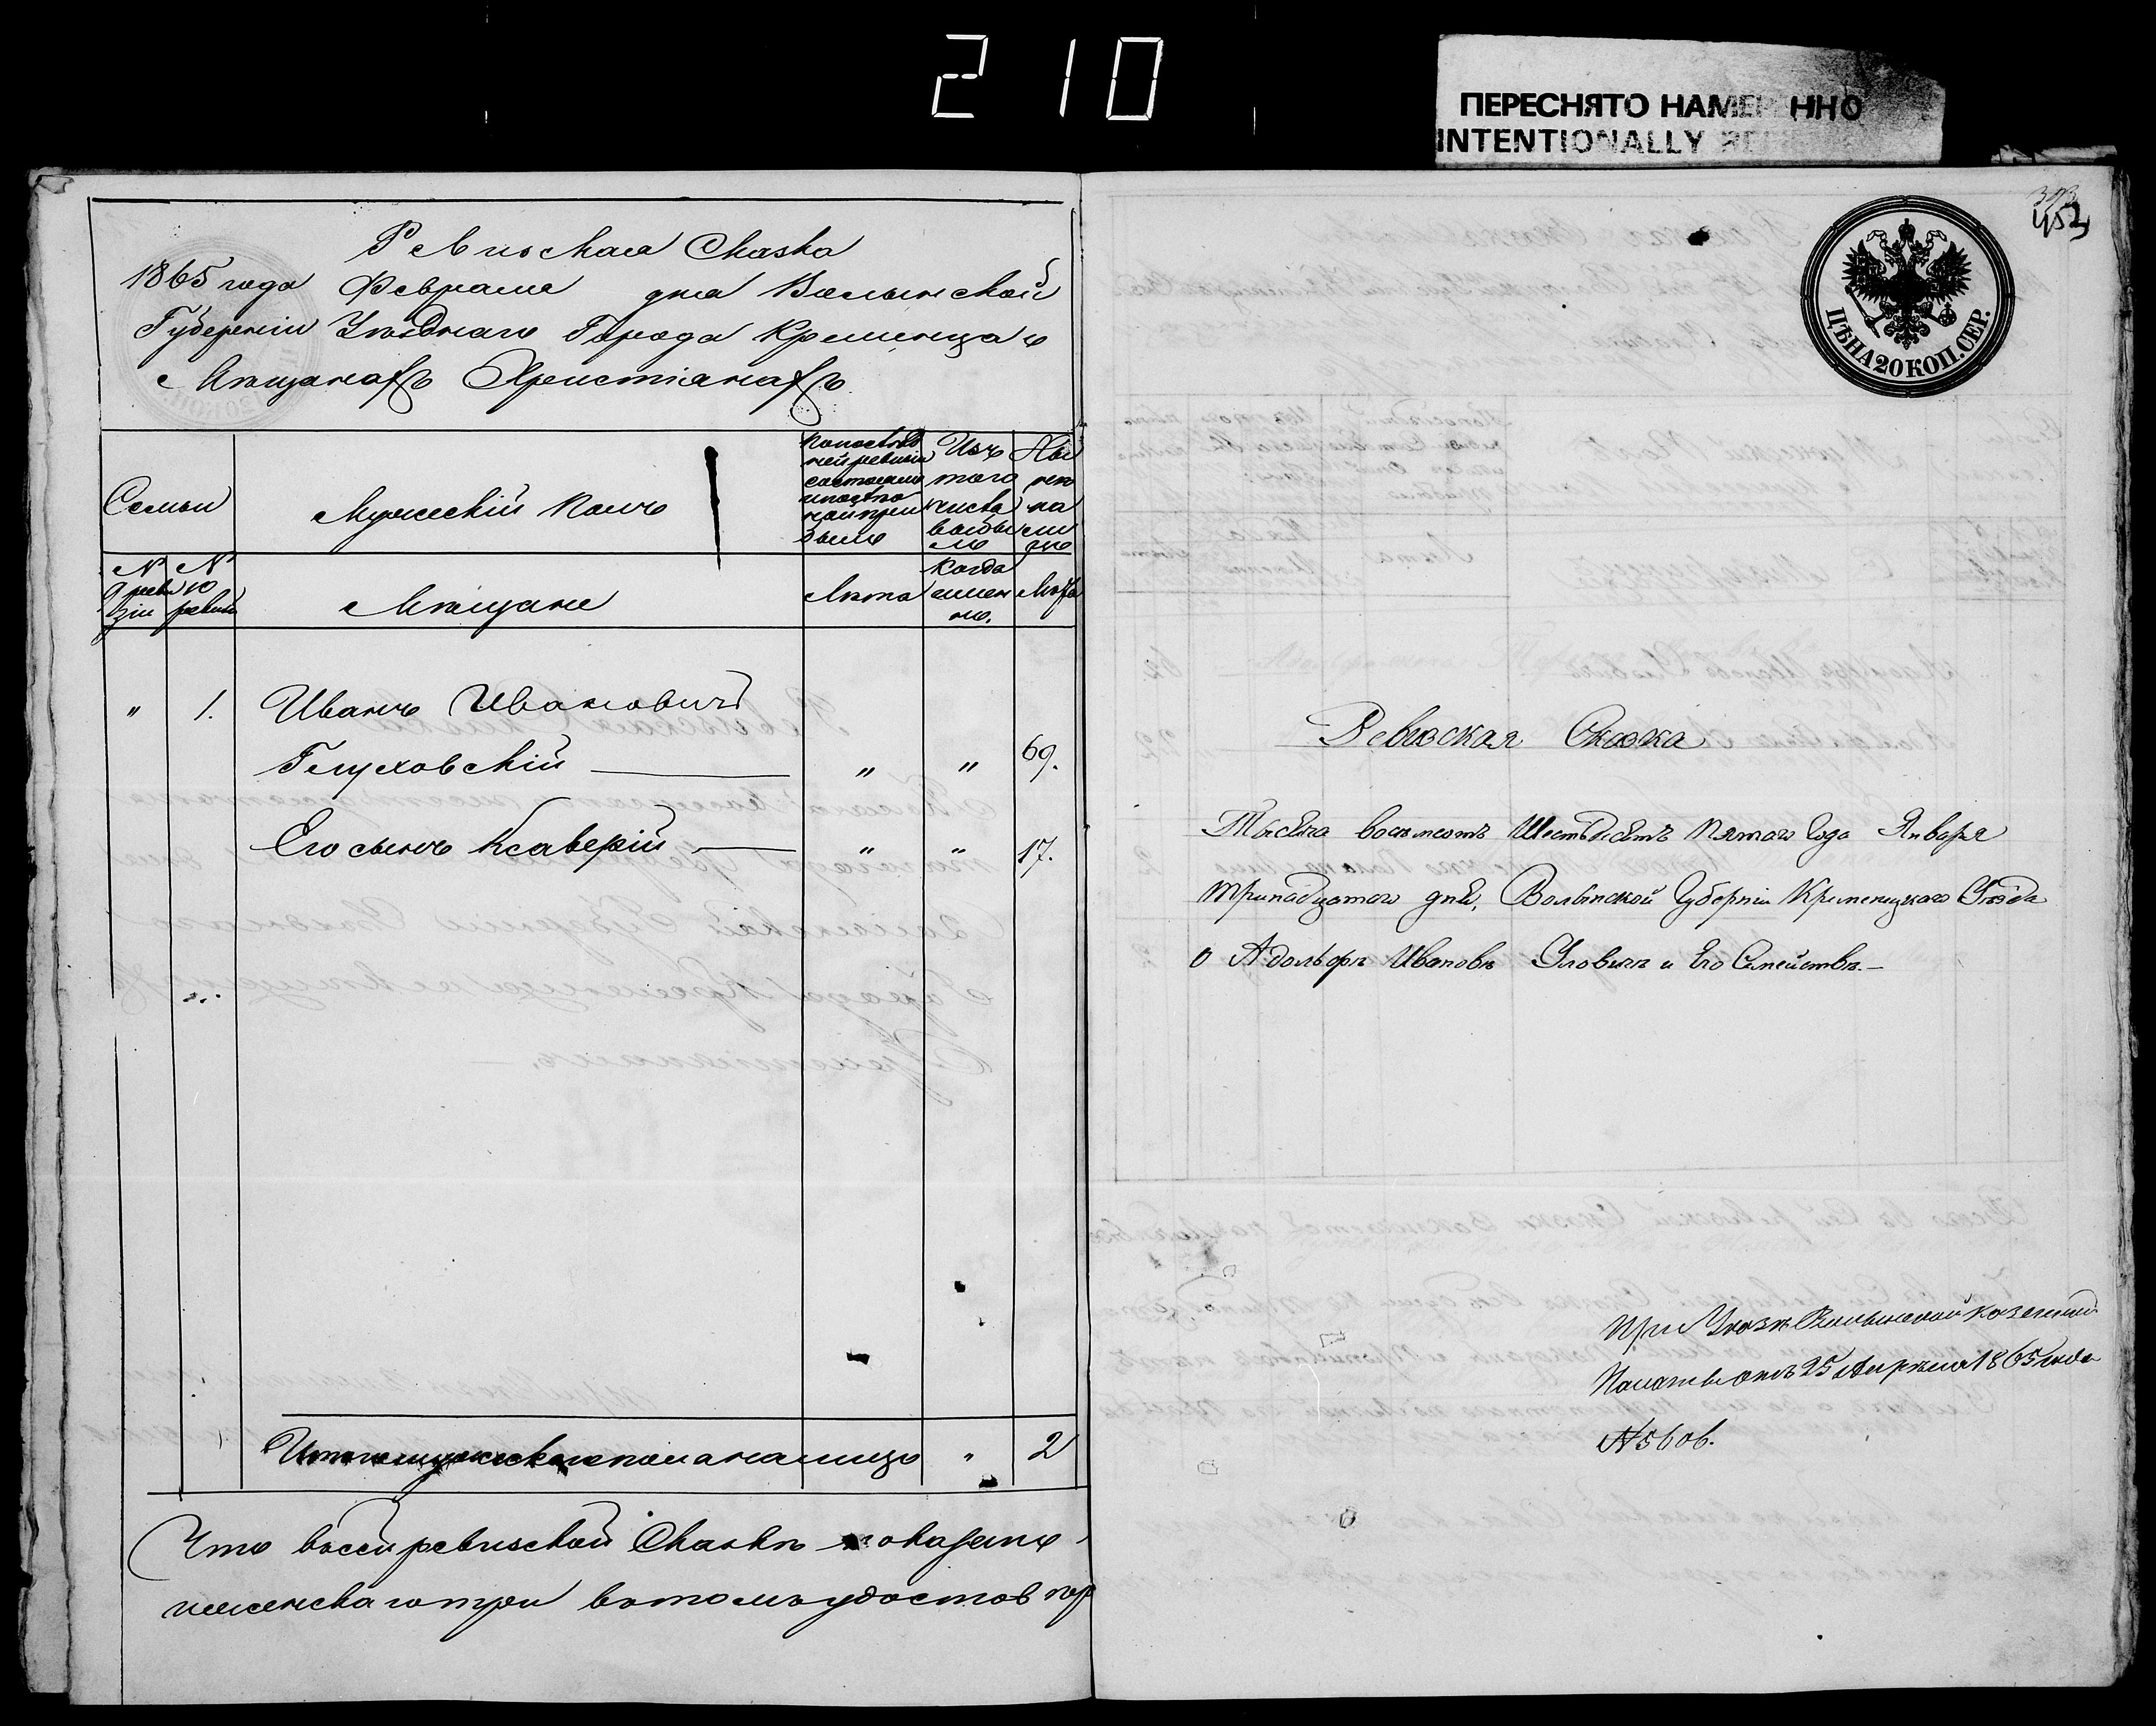 210
ПЕРЕСНЯТО НАМЕР ННО
INTENTIONALLY
Ревизская Сказка
1865 года Февраля дня Волынской
Губерніи Уѣзднаго Города Кременца о
Мѣщанахъ Христіанахъ
Семьи
Мужескій полъ
Изъ
того
числа
выбы
ло
Ны
нѣ
на
ли
цо
№
9 реви
зіи
№
10
ревизіи
Мѣщане
Лѣта
Когда
имен
но.
Лѣта
" 1. Иванъ Ивановичъ
Глуховскій " " 69.
Его сынъ Ксаверій " " 17.
Итого мужеска пола на лицо " 2
Что въ сей ревизской Сказкѣ показано
женска го три въ томъ удостовѣр
452
ЦѢНА 20 КОП. СЕР.
Ревизская Сказка
Тысяча восемьсотъ Шестьдесятъ Пятаго Года Января
тринадцатаго дня, Волынской Губерніи Кременецкаго Уѣзда
о Адольфѣ Ивановѣ и Его Семействѣ.—
При Указѣ Волынской Казенной
Палаты отъ 25 Апрѣля 1865 года
№ 5606.